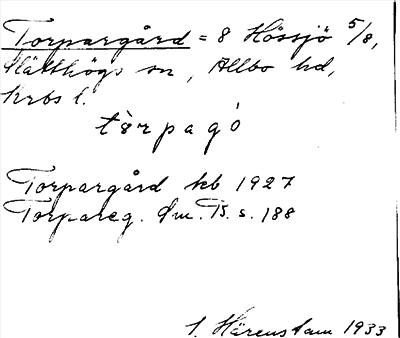 Torpargård = 8 Hössjö 5/8,
Slätthögs sn, Allbo hd,
Krbs l.
tòrpagó
Torpargård kb 1927
Torpareg. Øm. B. s. 188
J. Härenstam 1933